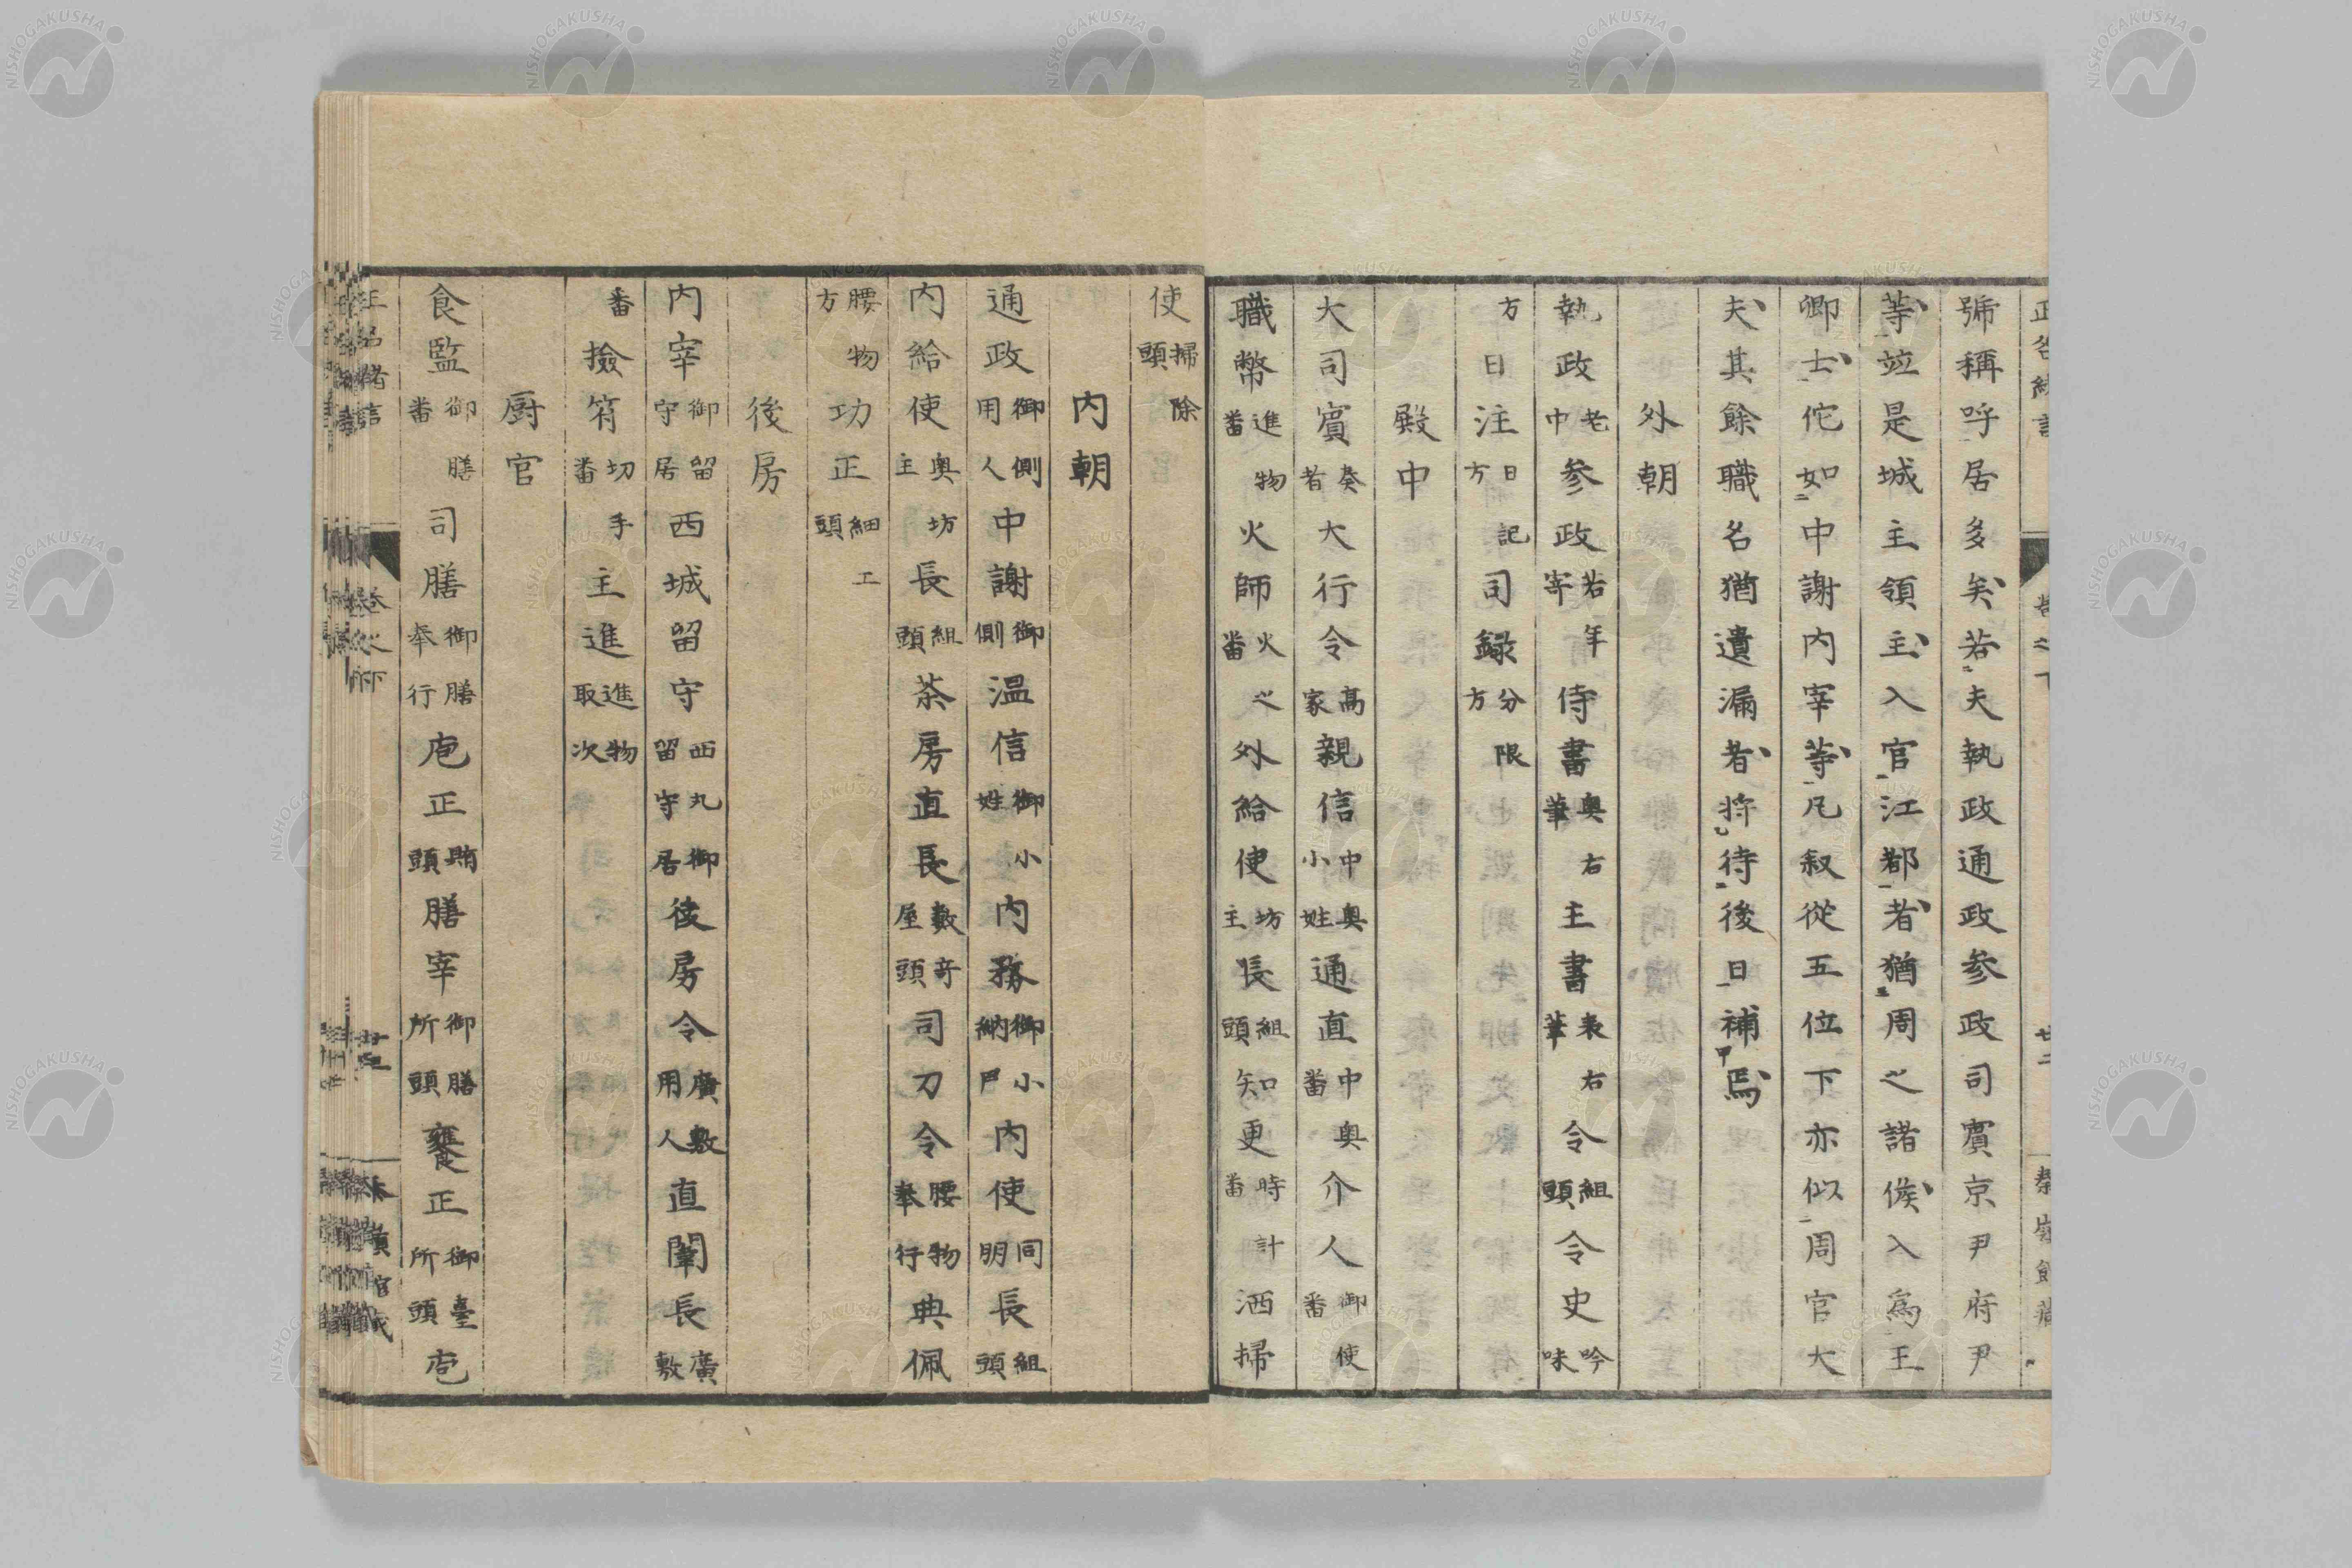 號稱呼居多矣若夫執政通政參政司賓京尹府尹
等竝是城主領主入官江都者猶周之諸侯入為王
卿士佗如中謝內宰等凡叙從五位下亦似周官大
夫其餘職名猶遺漏者將待後日補焉
外朝
執政老中參政若年寄侍書奧右筆主書表右筆令組頭令史吟味
方日注日記方司録分限方
殿中
大司賓奏者大行令高家親信中奧小姓通直中奧番介人御使番
職幣進物番火師火之番外給使坊主長組頭知更時計番洒掃
使掃除頭
內朝
通政御側用人中謝御側溫信御小姓內務御小納戸內使同朋長組頭
內給使奧坊主長組頭茶房直長數寄屋頭司刀令腰物奉行典佩
腰物方功正細工頭
後房
內宰御留守居西城留守西丸御留守居後房令廣敷用人直闈長廣敷
番撿符切手番主進進物取次
厨官
食監御膳番司膳御膳奉行庖正賄頭膳宰御膳所頭饔正御臺所頭庖
正名緒言
卷之下